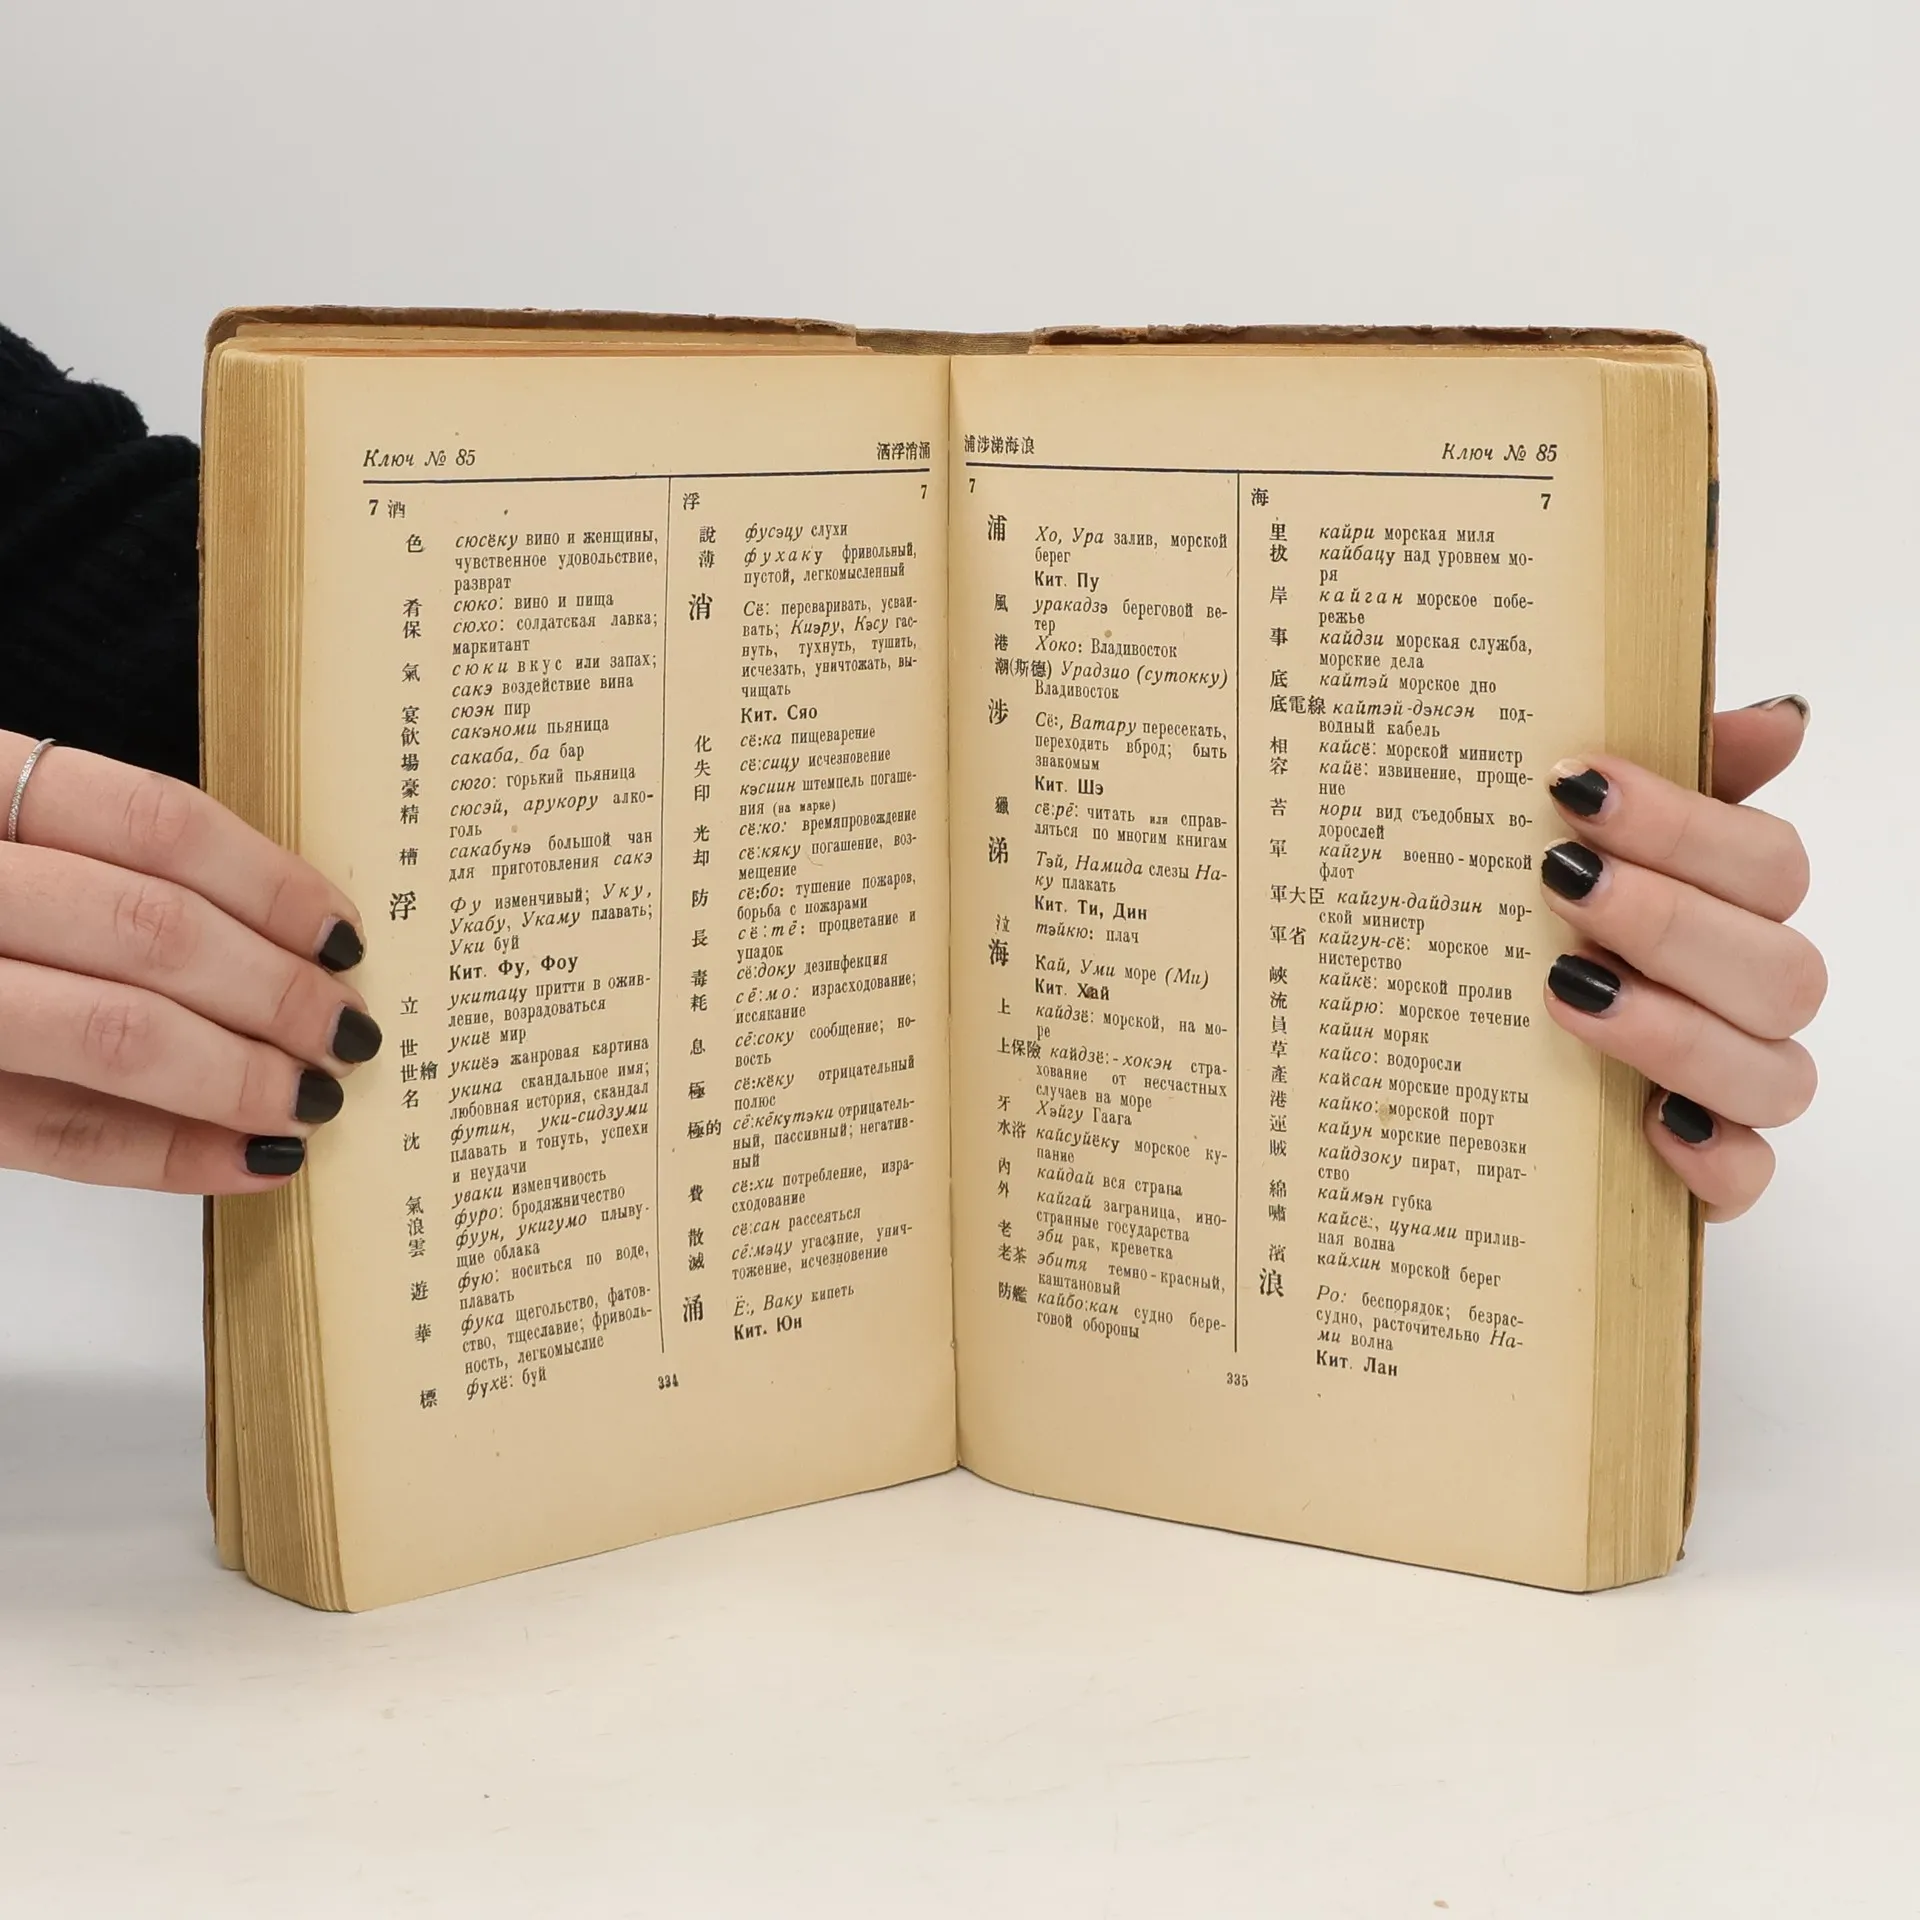 Ключ № 85
酒浮消涌
7 酒
色 сюсёку вино и женщины,
чувственное удовольствие,
разврат
肴 сюко: вино и пища
保 сюхо: солдатская лавка;
маркитант
氣 сюки вкус или запах;
сакэ воздействие вина
宴 сюэн пир
飮 сакэноми пьяница
場 сакаба, ба бар
豪 сюго: горький пьяница
精 сюсэй, арукору алко-
голь
槽 сакабунэ большой чан
для приготовления сакэ
浮 Фу изменчивый; Уку,
Укабу, Укаму плавать;
Уки буй
Кит. Фу, Фоу
立 укитацу притти в ожив-
ление, возрадоваться
世 укиё мир
世繪 укиёэ жанровая картина
名 укина скандальное имя;
любовная история, скандал
沈 футин, уки-сидзуми
плавать и тонуть, успехи
и неудачи
氣 уваки изменчивость
浪 фуро: бродяжничество
雲 фуун, укигумо плыву-
щие облака
遊 фую: носиться по воде,
плавать
華 фука щегольство, фатов-
ство, тщеславие; фриволь-
ность, легкомыслие
標 фухё: буй
浮 7
說 фусэцу слухи
薄 фухаку фривольный,
пустой, легкомысленный
消 Сё: переваривать, усваи-
вать; Киэру, Кэсу гас-
нуть, тухнуть, тушить,
исчезать, уничтожать, вы-
чищать
Кит. Сяо
化 сё:ка пищеварение
失 сё:сицу исчезновение
印 кэсиин штемпель погаше-
ния (на марке)
光 сё:ко: времяпровождение
却 сё:кяку погашение, воз-
мещение
防 сё:бо: тушение пожаров,
борьба с пожарами
長 сё:тё: процветание и
упадок
毒 сё:доку дезинфекция
耗 сё:мо: израсходование;
иссякание
息 сё:соку сообщение; но-
вость
極 сё:кёку отрицательный
полюс
極的 сё:кёкутэки отрицатель-
ный, пассивный; негатив-
ный
費 сё:хи потребление, изра-
сходование
散 сё:сан рассеяться
滅 сё:мэцу угасание, унич-
тожение, исчезновение
涌 Ё:, Ваку кипеть
Кит. Юн
334
浦涉涕海浪
Ключ № 85
7
浦 Хо, Ура залив, морской
берег
Кит. Пу
風 уракадзэ береговой ве-
тер
港 Хоко: Владивосток
潮(斯德) Урадзио (сутокку)
Владивосток
涉 Сё:, Ватару пересекать,
переходить вброд; быть
знакомым
Кит. Шэ
獵 сё:рё: читать или справ-
ляться по многим книгам
涕 Тэй, Намида слезы На-
ку плакать
Кит. Ти, Дин
泣 тэйкю: плач
海 Кай, Уми море (Ми)
Кит. Хай
上 кайдзё: морской, на мо-
ре
上保險 кайдзё:-хокэн стра-
хование от несчастных
случаев на море
牙 Хэйгу Гаага
水浴 кайсуйёку морское ку-
пание
內 кайдай вся страна
外 кайгай заграница, ино-
странные государства
老 эби рак, креветка
老茶 эбитя темно-красный,
каштановый
防艦 кайбо:кан судно бере-
говой обороны
海 7
里 кайри морская миля
拔 кайбацу над уровнем мо-
ря
岸 кайган морское побе-
режье
事 кайдзи морская служба,
морские дела
底 кайтэй морское дно
底電線 кайтэй-дэнсэн под-
водный кабель
相 кайсё: морской министр
容 кайё: извинение, проще-
ние
苔 нори вид съедобных во-
дорослей
軍 кайгун военно-морской
флот
軍大臣 кайгун-дайдзин мор-
ской министр
軍省 кайгун-сё: морское ми-
нистерство
峽 кайкё: морской пролив
流 кайрю: морское течение
員 кайин моряк
草 кайсо: водоросли
產 кайсан морские продукты
港 кайко: морской порт
運 кайун морские перевозки
賊 кайдзоку пират, пират-
ство
綿 каймэн губка
嘯 кайсё:, цунами прилив-
ная волна
濱 кайхин морской берег
浪 Ро: беспорядок; безрас-
судно, расточительно На-
ми волна
Кит. Лан
335